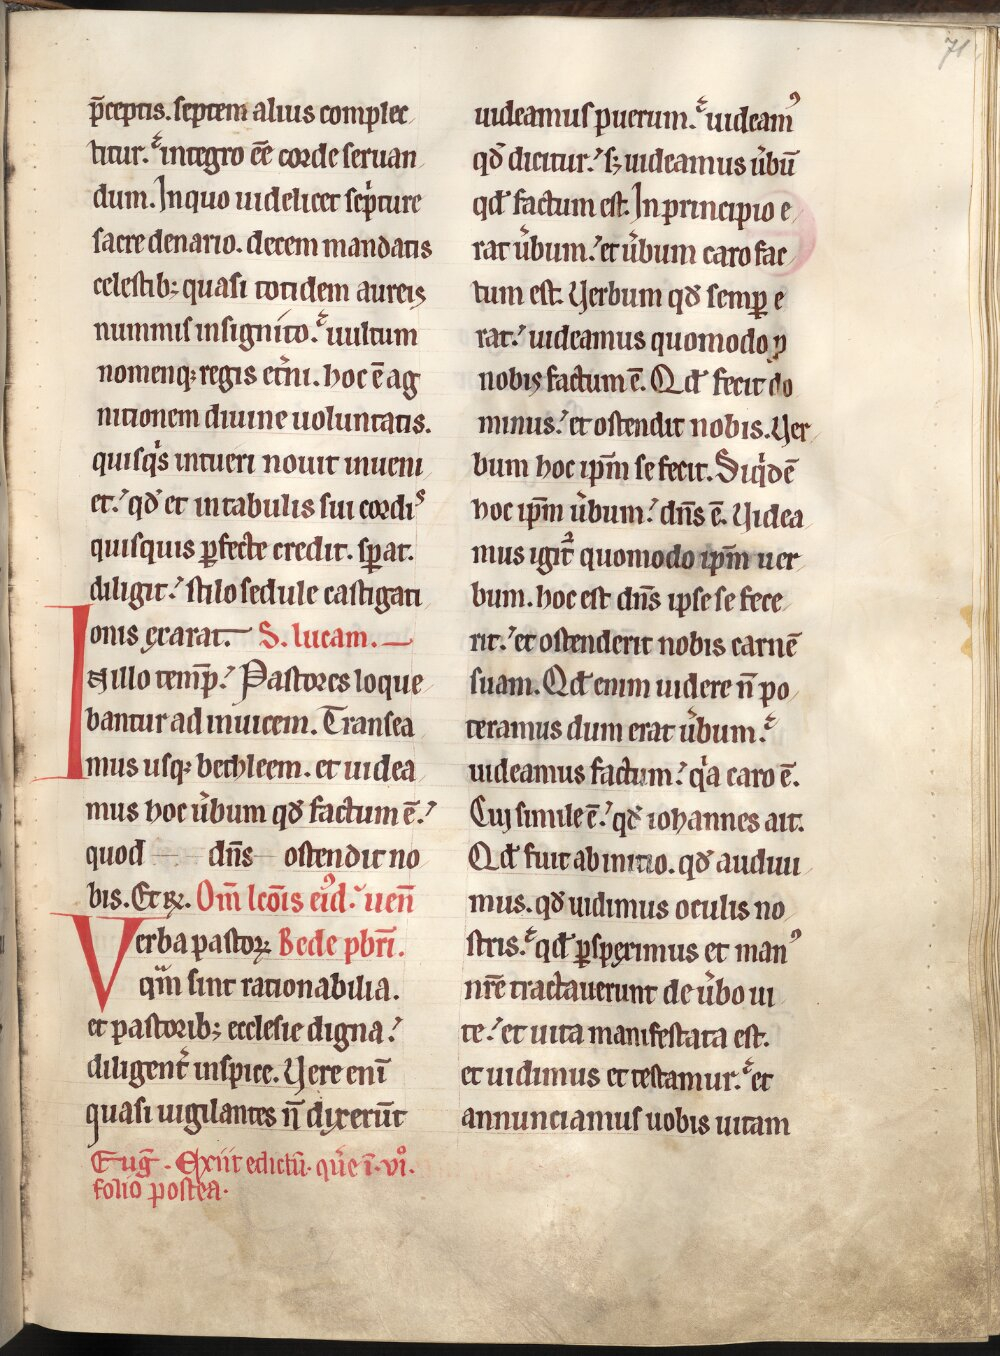 71
p̄ceptis. septem alius complec
titur. integro ēe corde seruan
dum. In quo uidelicet sc̄pture
sacre denario. decem mandatis
celestib; quasi totidem aureis
nummis insignito. uultum
nomenq; regis et̄ni. hoc ē ag
nitionem diuine uoluntatis.
quisq̇s intueri nouit inueni
et. qđ et in tabulis sui cordis
quisquis ꝑfecte credit. sꝑat.
diligit. stilo sedule castigati
onis exarat. S. lucam.
In illo temp̄. Pastores loque
bantur ad inuicem. Transea
mus usq; bethleem. et uidea
mus hoc u̇bum qđ factum ē.
quod dn̄s ostendit no
bis. Et R̄. Om̄ lc̄ōis eiꝰd. uen̄
Verba pastoꝝ Bede pb̄ri.
qm̄ sint rationabilia.
et pastorib; ecclesie digna.
diligent̄ inspice. Vere eni̅
quasi uigilantes n̄ dixerūt
Eug̅. Exiit edictū. que ī. vi.
folio postea.
uideamus puerum. uideamꝰ
qđ dicitur. s; uideamus u̇bū
qđ factum est. In principio e
rat u̇bum. et u̇bum caro fac
tum est. Verbum qđ semꝑ e
rat. uideamus quomodo ꝓ
nobis factum ē. Qđ fecit do
minus. et ostendit nobis. Ver
bum hoc ip̄m se fecit. Siq̇dē
hoc ip̄m u̇bum. dn̄s ē. Videa
mus igit̄ quomodo ip̄m uer
bum. hoc est dn̄s ipse se fece
rit. et ostenderit nobis carnē
suam. Qđ enim uidere n̄ po
teramus dum erat u̇bum.
uideamus factum. q̇a caro ē.
Cui simile ē. qđ iohannes ait.
Qđ fuit ab initio. qđ audiui
mus. qđ uidimus oculis no
stris. qđ ꝑspeximus et manꝰ
nr̄e tractauerunt de u̇bo ui
te. et uita manifestata est.
et uidimus et testamur. et
annunciamus uobis uitam